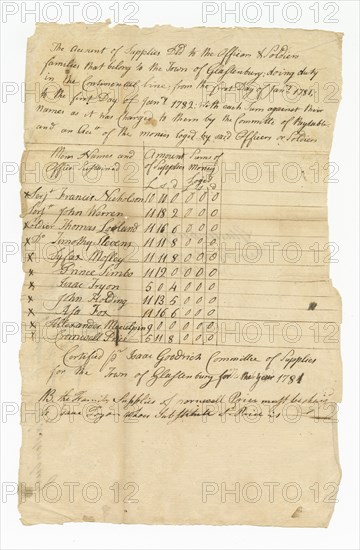 The Amount of Supplies Dld to the Officers & Soldiers
families that belong to the Town of Glastenbury; doing duty
in the Continental line; from the first Day of Janry 1781
to the first Day of Janry 1782 with each Sum against their
names as it was charged to them by the Committe of
and an of the monies by said Officers or Soldiers
Mens Names and Amount Sums of
Office Sustained of Supplies Money
£ s d
x Serjt Francis Nicholson 10 11 0 0 0 0
x Serjt John Warren 11 18 2 0 0 0
x Thomas Loveland 11 16 6 0 0 0
x Do Timothy Stevens 11 11 8 0 0 0
x Mosley 11 11 8 0 0 0
x Prince Simbo 11 12 0 0 0 0
x Isaac Tryon 5 0 4 0 0 0
x John Holding 11 13 5 0 0 0
x Asa Fox 11 16 6 0 0 0
x Alexander 9 0 0 0 0
x Cornwell Price 5 11 8 0 0 0
Certified pr Isaac Goodrich Committee of Supplies
for the Town of Glastenbury for the year 1781
NB the Family Supplies of Cornwell Price must be
to Isaac Tryon whose Substitute Sd Price is